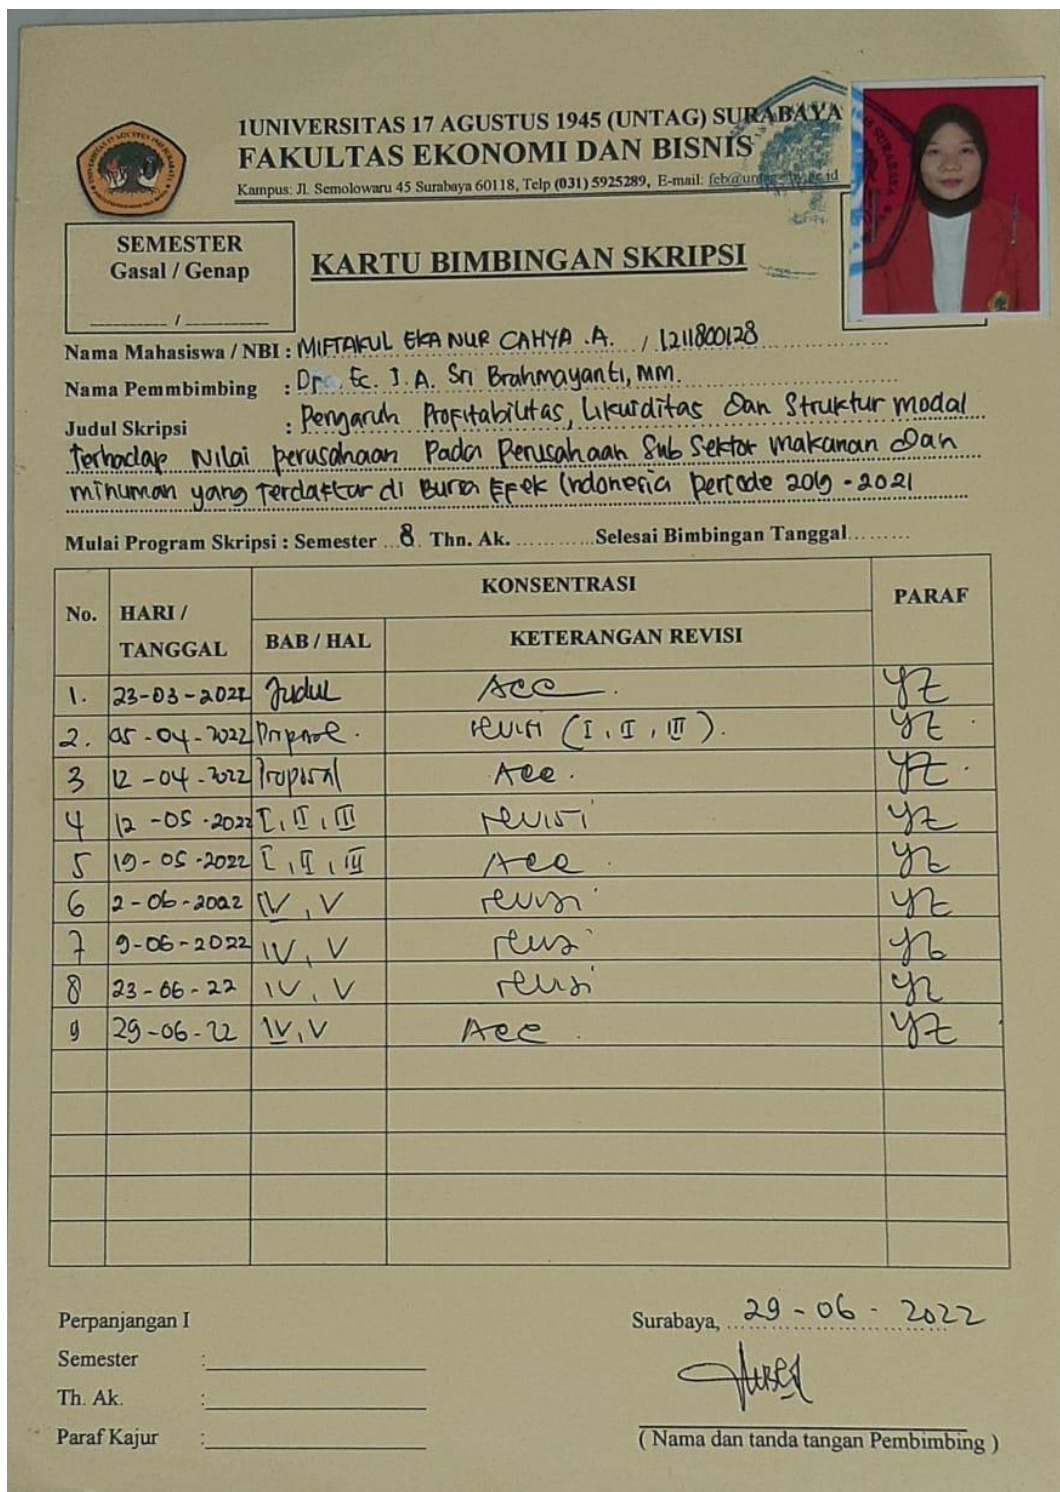 1UNIVERSITAS 17 AGUSTUS 1945 (UNTAG) SURABAYA
FAKULTAS EKONOMI DAN BISNIS
Kampus: Jl. Semolowaru 45 Surabaya 60118, Telp (031) 5925289, E-mail: feb@untag-sby.ac.id
SEMESTER
Gasal / Genap
/
KARTU BIMBINGAN SKRIPSI
Nama Mahasiswa / NBI : MIFTAKUL EKA NUR CAHYA .A. / 1211800128
Nama Pemmbimbing : Dra. Ec. I. A. Sri Brahmayanti, MM.
Judul Skripsi : Pengaruh Profitabilitas, Likuiditas Dan Struktur modal
Terhadap Nilai perusahaan Pada Perusahaan Sub Sektor Makanan Dan
minuman yang Terdaftar di Bursa Efek Indonesia Periode 2019 - 2021
Mulai Program Skripsi : Semester ...8. Thn. Ak. ............Selesai Bimbingan Tanggal.........
No. HARI / TANGGAL KONSENTRASI PARAF
BAB / HAL KETERANGAN REVISI
1. 23-03-2022 Judul Acc.
2. 05-04-2022 Proposal. revisi (I, II, III).
3 12-04-2022 Proposal Acc.
4 12-05-2022 I, II, III revisi
5 19-05-2022 I, II, III Acc.
6 2-06-2022 IV, V revisi
7 9-06-2022 IV, V revisi
8 23-06-22 IV, V revisi
9 29-06-22 IV, V Acc.
Perpanjangan I
Semester :
Th. Ak. :
Paraf Kajur :
Surabaya, 29 - 06 - 2022
( Nama dan tanda tangan Pembimbing )